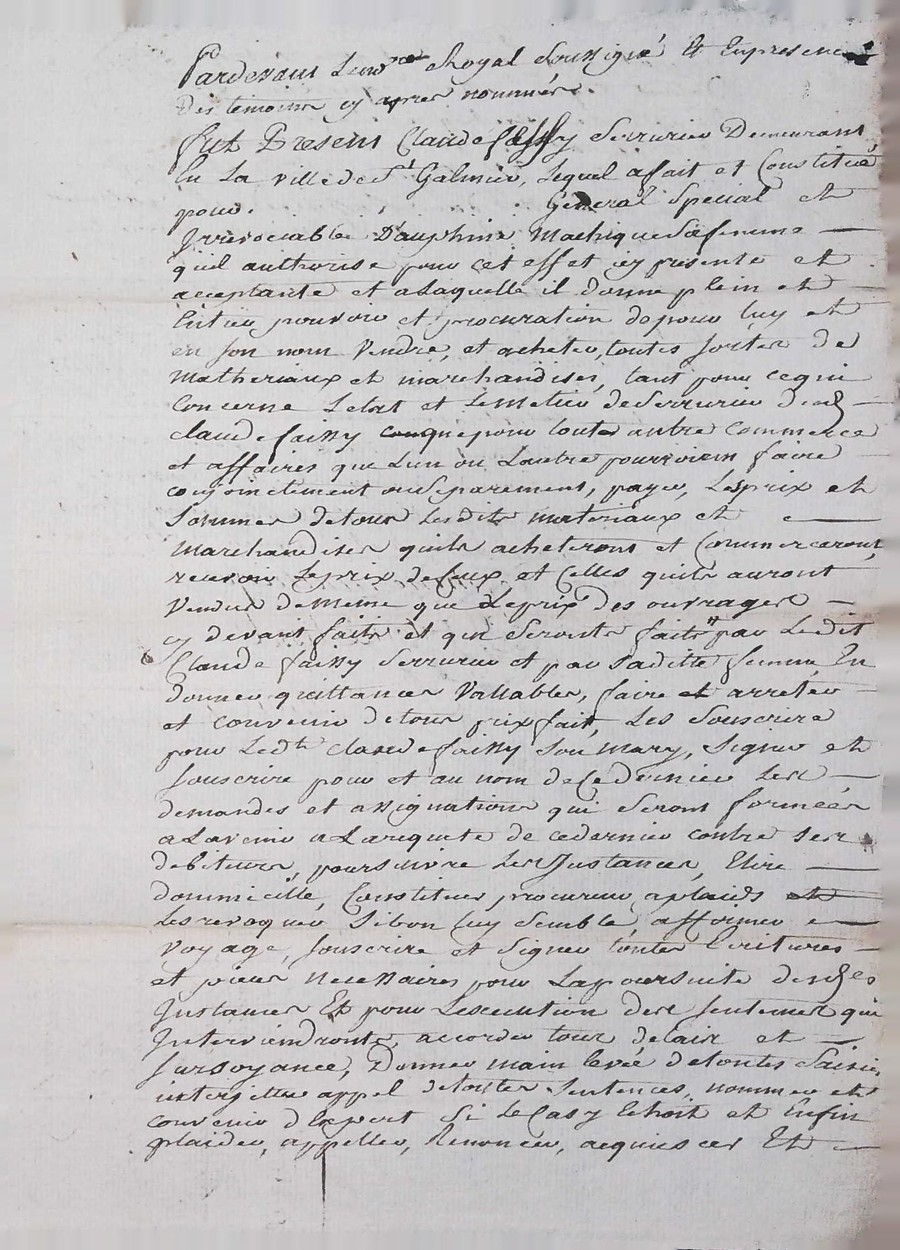 Pardevant Le no.re Royal Soussigné Et En presence
Des temoins cy apres nommés.
Fut Present Claude faissy Serrurier Demeurant
En La ville de St Galmier, Lequel a fait et Constitué
pour. General Special et
Irrevocable Dauphine Sa femme
quil authorise pour cet effet cy presente et
acceptante et a Laquelle il donne plein et
Entier pouvoir et procuration de pour luy et
en son nom Vendre, et acheter, toutes sortes de
Matheriaux et marchandises, tant pour ce qui
Concerne Letat et Le Metier de Serrurier dud.
claude faissy que pour toute autre Commerce
et affaires que Lun ou Lautre pourroient faire
conjoinctement ou Separement, payer, Les prix et
Sommes de tous Lesdits materiaux et
Marchandises quils acheteront et Commerceront,
recevoir Le prix de Ceux et Celles quils auront
Vendus de meme que Le prix des ouvrages
cy devant faits et qui Seronts faits par Ledit
Claude faissy Serrurier et par Saditte femme En
donner quittances Vallables, faire et arreter
et convenir de tous prix fait, Les Souscrire
pour Ledt claude faissy Son Mary, Signer et
Souscrire pour et au nom de Ce dernier Les
demandes et assignations qui Seront formées
a Lavenir a La requete de ce dernier contre Ses
debiteurs, poursuivre Les Instances, Elire
dommicille, Constituer procureur a plaids
Les revoquer Si bon luy Semble, affirmer
Voyage, Souscrire et Signer toutes Ecritures
et pieces necessaires pour La poursuite desd.es
Instances Et pour Lexecution des Sentences qui
Interviendronts, accorder tous delais et
Sursoyance, Donner main levée de toutes Saisies
interjetter appel de toutes Sentences, nommer et
convenir dExpert Si le Cas y Echoit et Enfin
plaider, appeller, Renoncer, acquiescer Et